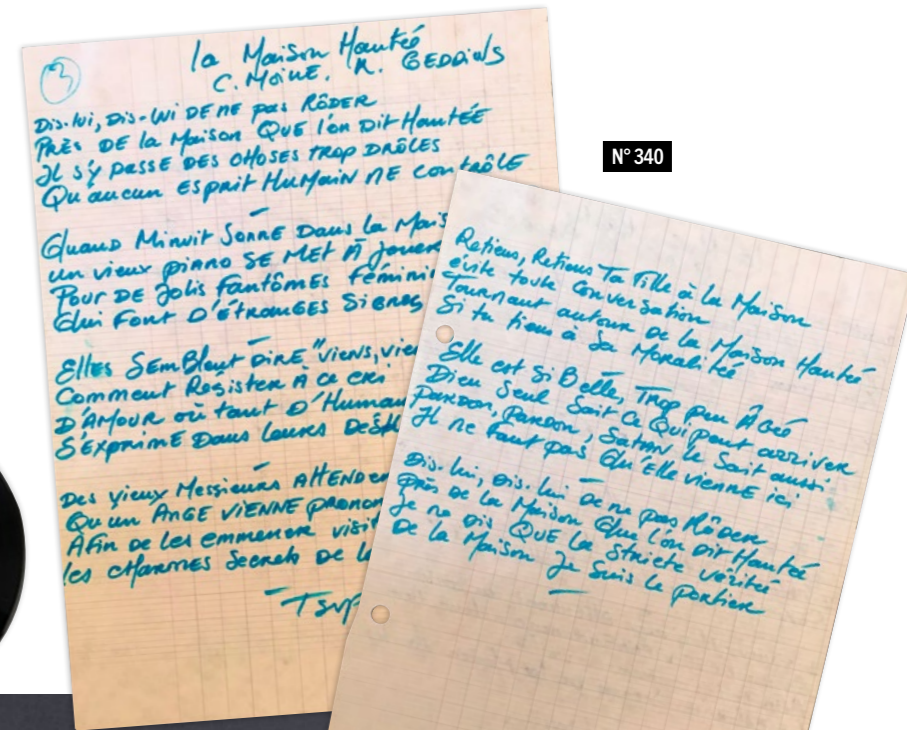 3
la Maison Hantée
C. MOINE. R. GEDDINS
Dis-lui, Dis-lui DE NE pas RÔDER
PRÈS DE la Maison QUE l'on DIT HANTÉE
Il s'y passe DES CHOSES TROP DRÔLES
Qu'aucun ESPRIT HUMAIN NE CONTRÔLE
Quand Minuit Sonne Dans la Mais
un vieux piano SE MET À jouer
Pour DE Jolis Fantômes Féminin
Qui Font D'ÉTRANGES Signes
Elles SEMBlent DIRE "viens, vie
Comment Resister À ce cri
D'AMOUR où tant D'Human
S'EXPRIME Dans leurs DESH
Des vieux Messieurs ATTENDEN
Qu'un ANGE VIENNE prenon
AFin DE les emmener visi
les CHARMES Secrets DE la
TSVP
N° 340
Retiens, Retiens Ta Fille à la Maison
évite toute Conversation
Tournant autour de la Maison Hantée
Si tu tiens à Sa Moralité
Elle est Si Belle, Trop peu Âgée
Dieu Seul Sait Ce Qui peut arriver
pardon, pardon, Satan le Sait aussi
Il ne Faut pas Qu'Elle vienne ici
Dis-lui, Dis-lui de ne pas Rôder
près de la Maison Que l'on Dit Hantée
Je ne Dis QUE la Stricte vérité
De la Maison Je Suis le portier